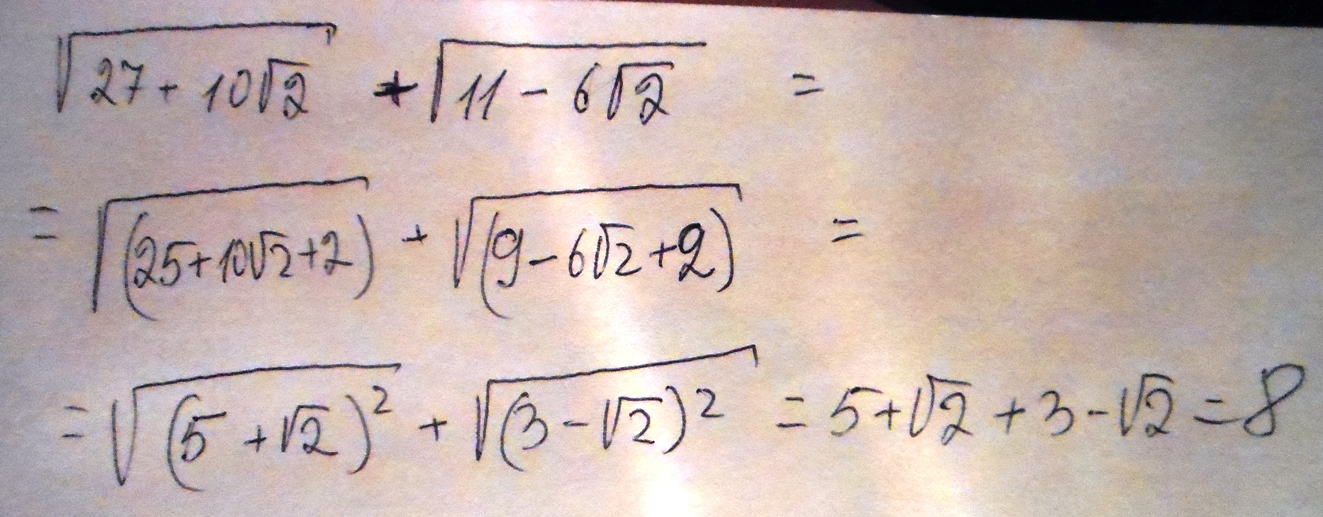 √(27 + 10√2) + √(11 - 6√2) =
= √(25+10√2+2) + √(9-6√2+2) =
= √(5 + √2)² + √(3 - √2)² = 5+√2 + 3-√2 = 8